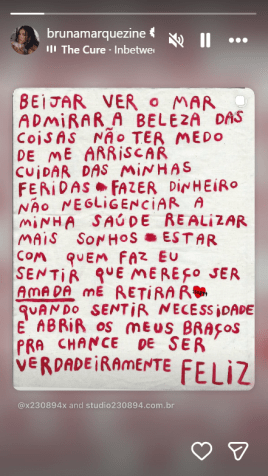 brunamarquezine
The Cure · Inbetwe
BEIJAR VER O MAR
ADMIRAR A BELEZA DAS
COISAS NÃO TER MEDO
DE ME ARRISCAR
CUIDAR DAS MINHAS
FERIDAS FAZER DINHEIRO
NÃO NEGLIGENCIAR A
MINHA SAÚDE REALIZAR
MAIS SONHOS ESTAR
COM QUEM FAZ EU
SENTIR QUE MEREÇO SER
AMADA ME RETIRAR
QUANDO SENTIR NECESSIDADE
E ABRIR OS MEUS BRAÇOS
PRA CHANCE DE SER
VERDADEIRAMENTE FELIZ
@x230894x and studio230894.com.br